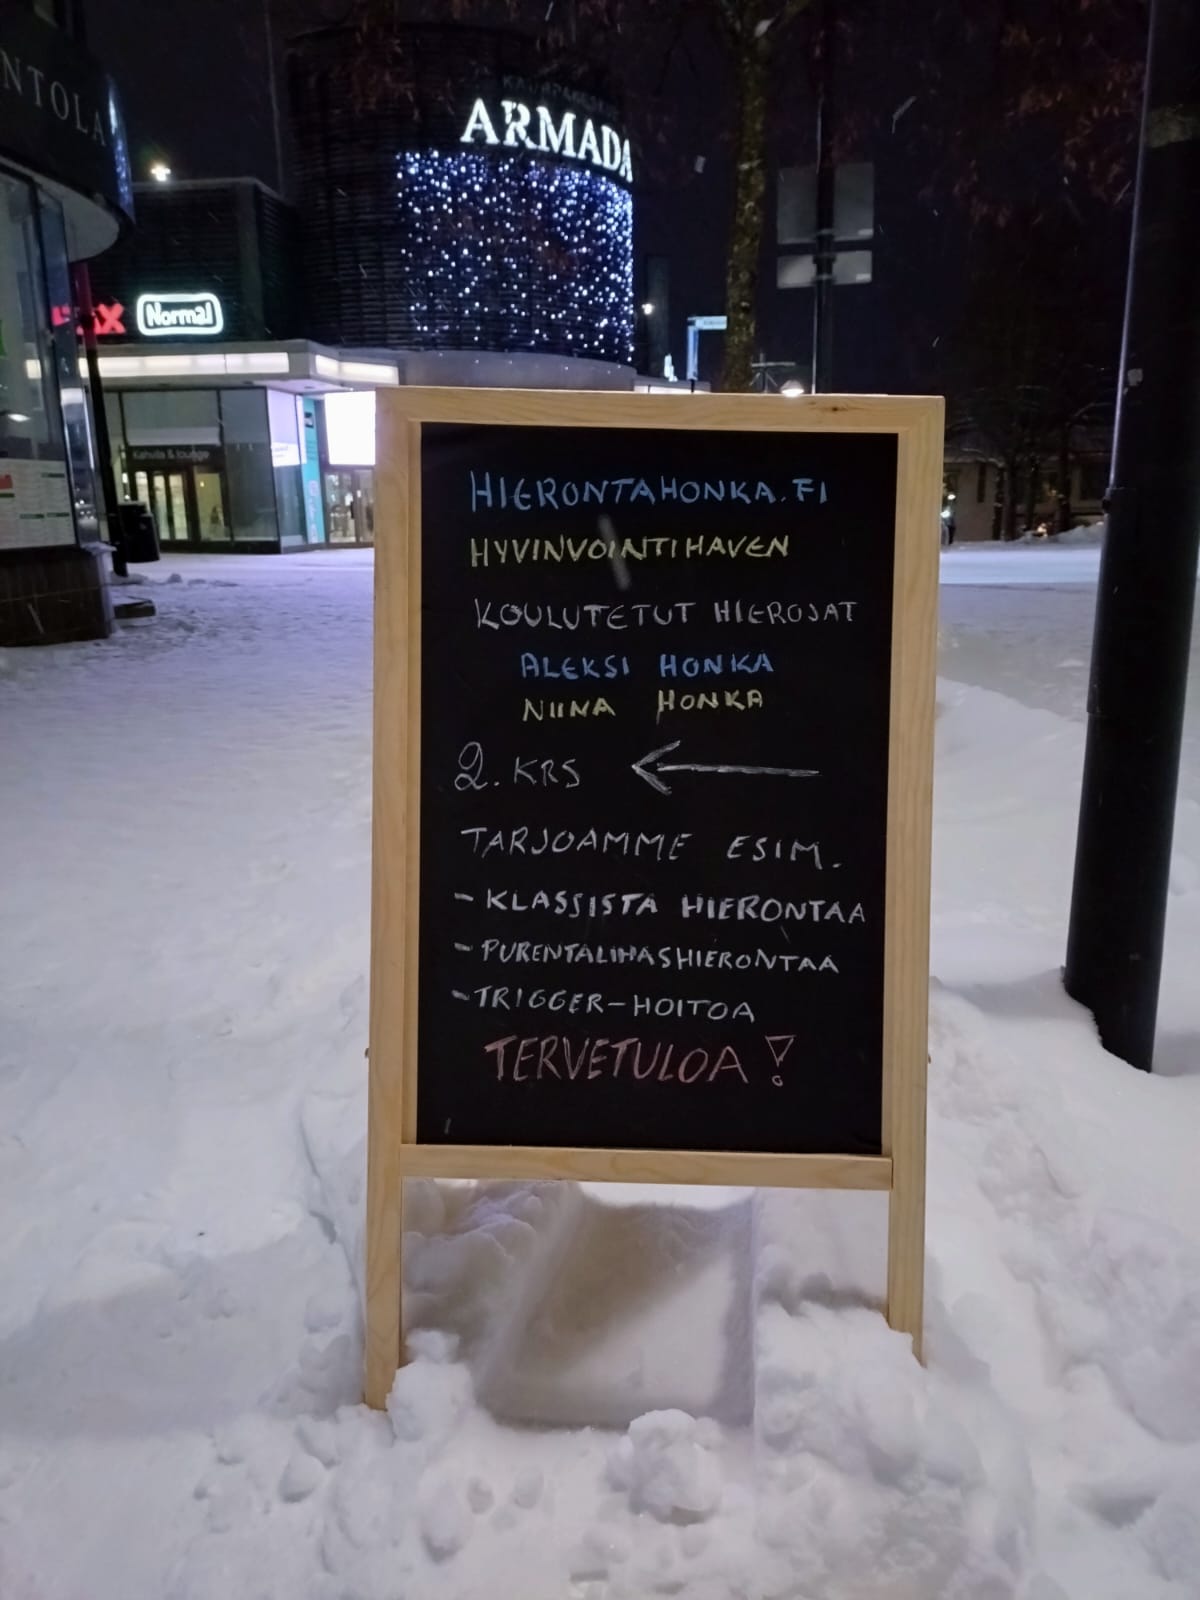 NTOLA
ARMADA
Normal
Kahvila & lounge
HIERONTAHONKA.FI
HYVINVOINTIHAVEN
KOULUTETUT HIEROJAT
ALEKSI HONKA
NIINA HONKA
2. KRS ←
TARJOAMME ESIM.
- KLASSISTA HIERONTAA
- PURENTALIHASHIERONTAA
- TRIGGER-HOITOA
TERVETULOA!